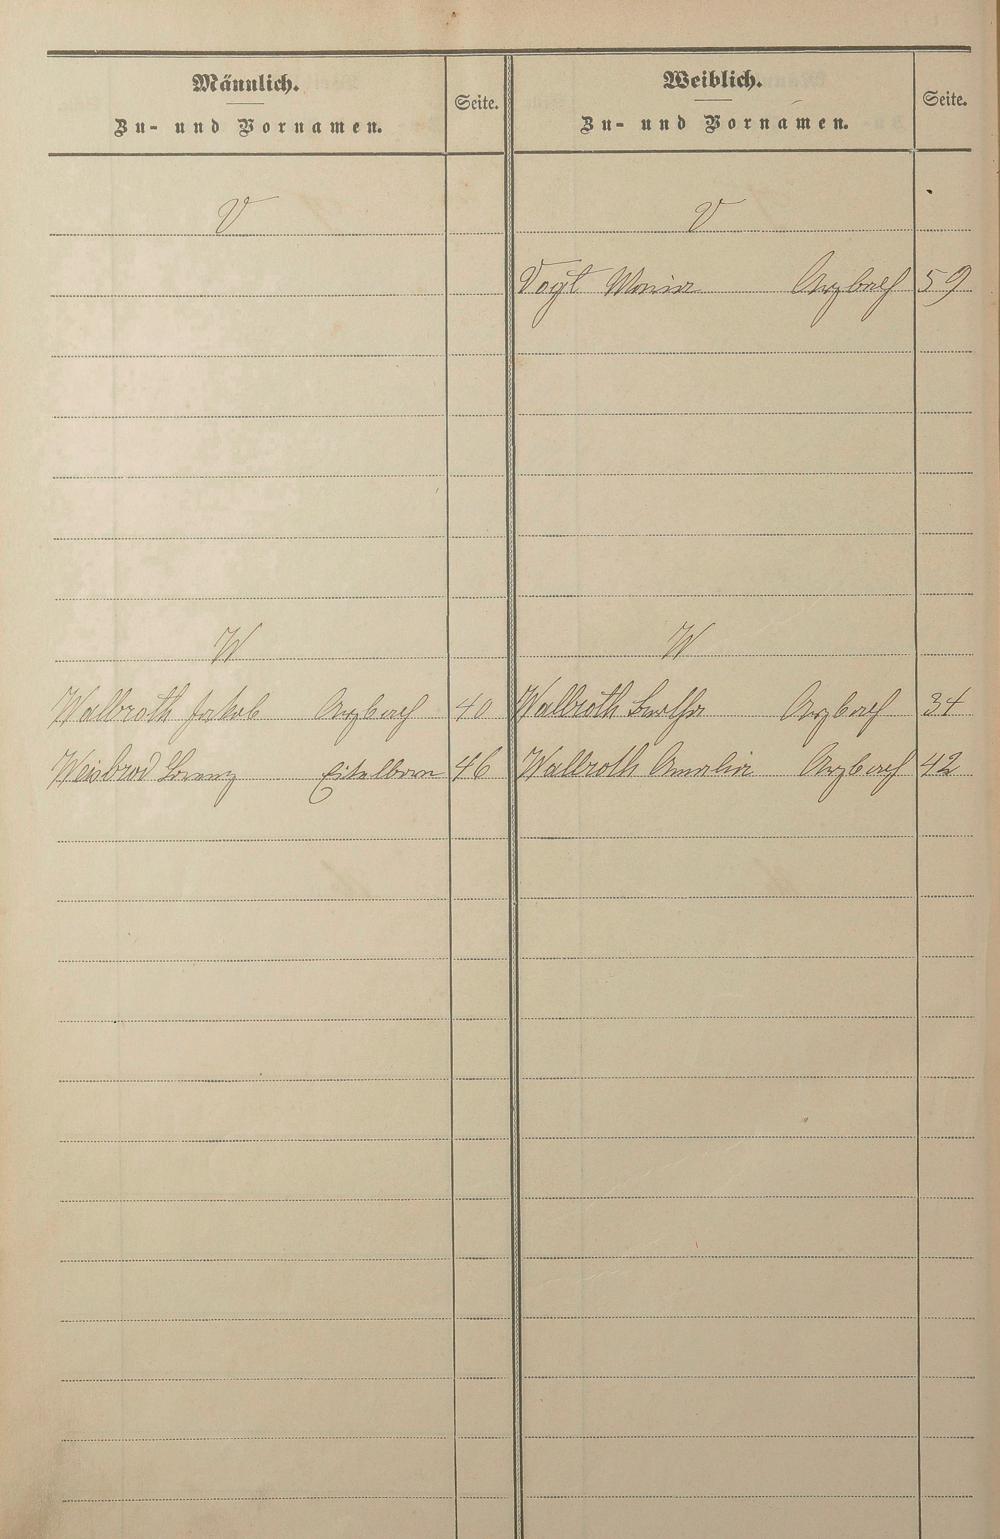 Männlich.
Zu- und Vornamen.
Seite.
Weiblich.
Zu- und Vornamen.
Seite.
V
V
Vogt Maria Arzbach 59
W
W
Walbroth Jakob Arzbach 40
Walbroth Bertha Arzbach 34
Weisbrod Lorenz Eitelborn 46
Wallroth Amalia Arzbach 42